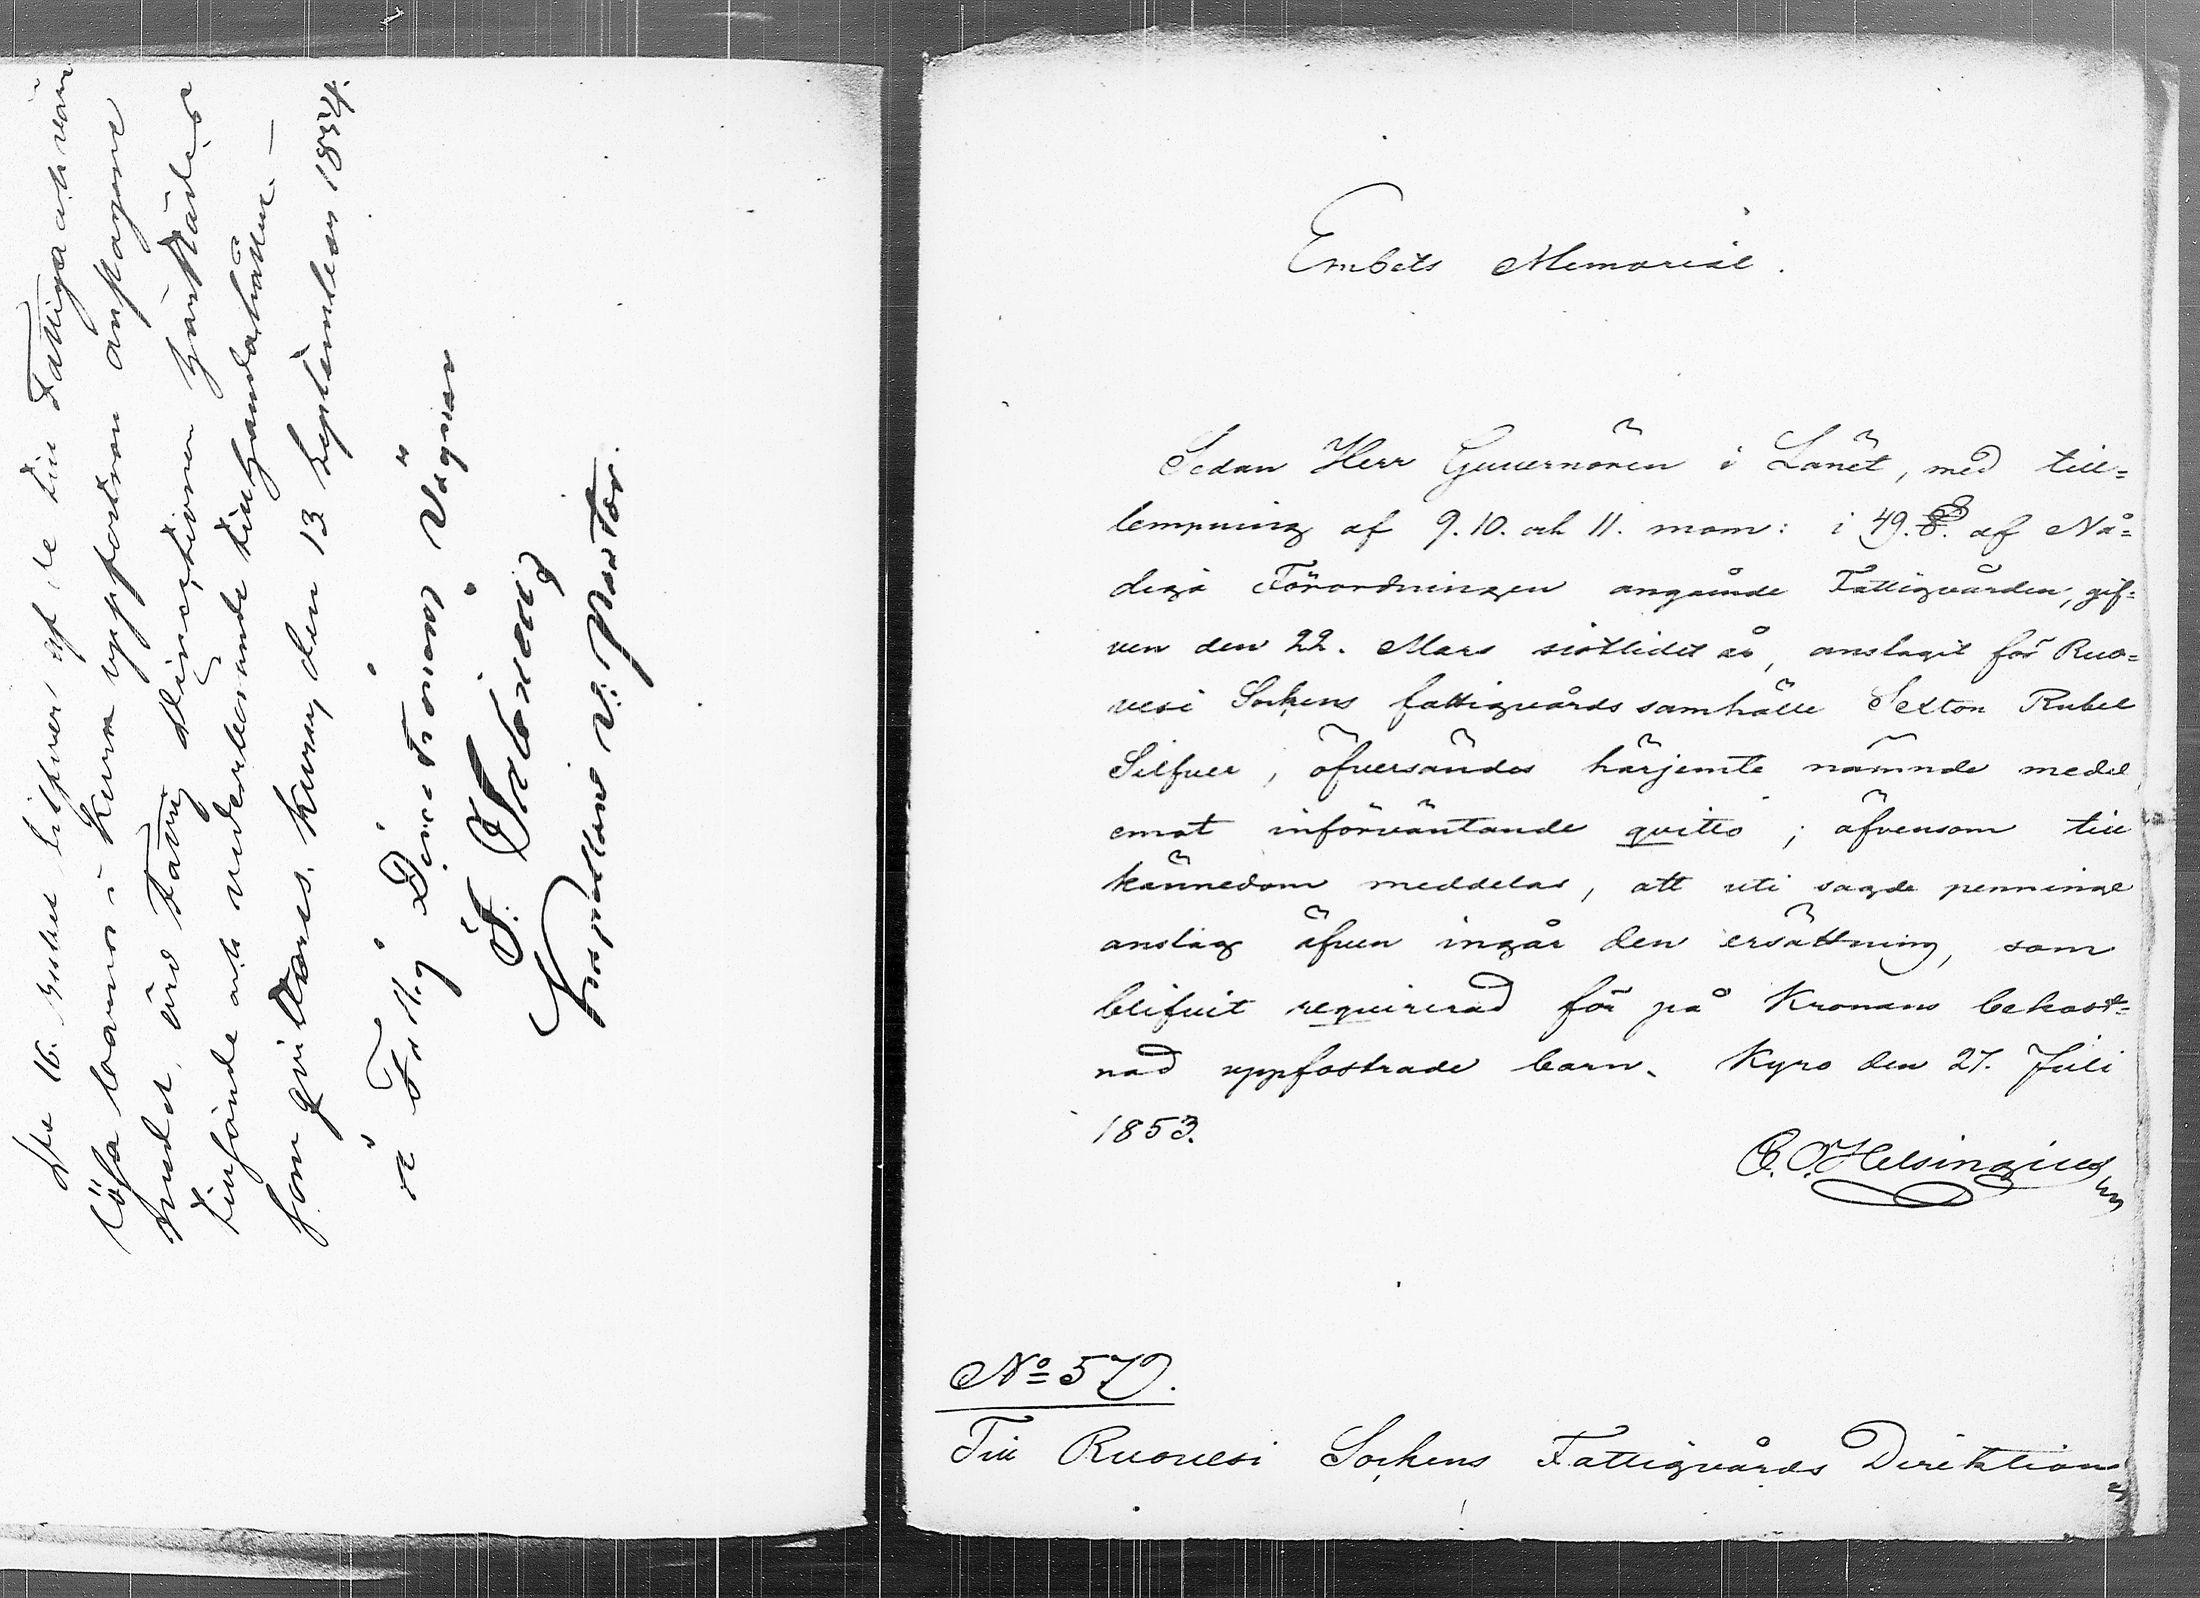 De 16. Rubel Silfver af de till Fattiga och värn
lösa barns i Kuru uppfostran anslagne
medel, har Fattig Directionen härstädes
tillhanda och vederbörande tillhandahållne.—
som qvitteras. Kuru den 13 September 1854.
På Fattig Directionens Vägnar
F. Idberg
Kapellans v. Pastor.
Embets Memorial.
Sedan Herr Guvernören i Länet, med till=
lempning af 9. 10. och 11. mom: i 49. §. af Nå=
diga Förordningen angående Fattigvården, gif=
ven den 22. Mars sistlidet år, anslagit för Ruo=
vesi Sockens fattigvårds samhälle Sexton Rubel
Silfver, öfversändes härjemte nämnde medel
emot införväntande qvitto; äfvensom till
kännedom meddelas, att uti sagde penninge
anslag äfven ingår den ersättning, som
blifvit requirerad för på Kronans bekost=
nad uppfostrade barn. Kyro den 27. Juli
1853.
C. O. Helsingius
No 579.
Till Ruovesi Sockens Fattigvårds Direktion